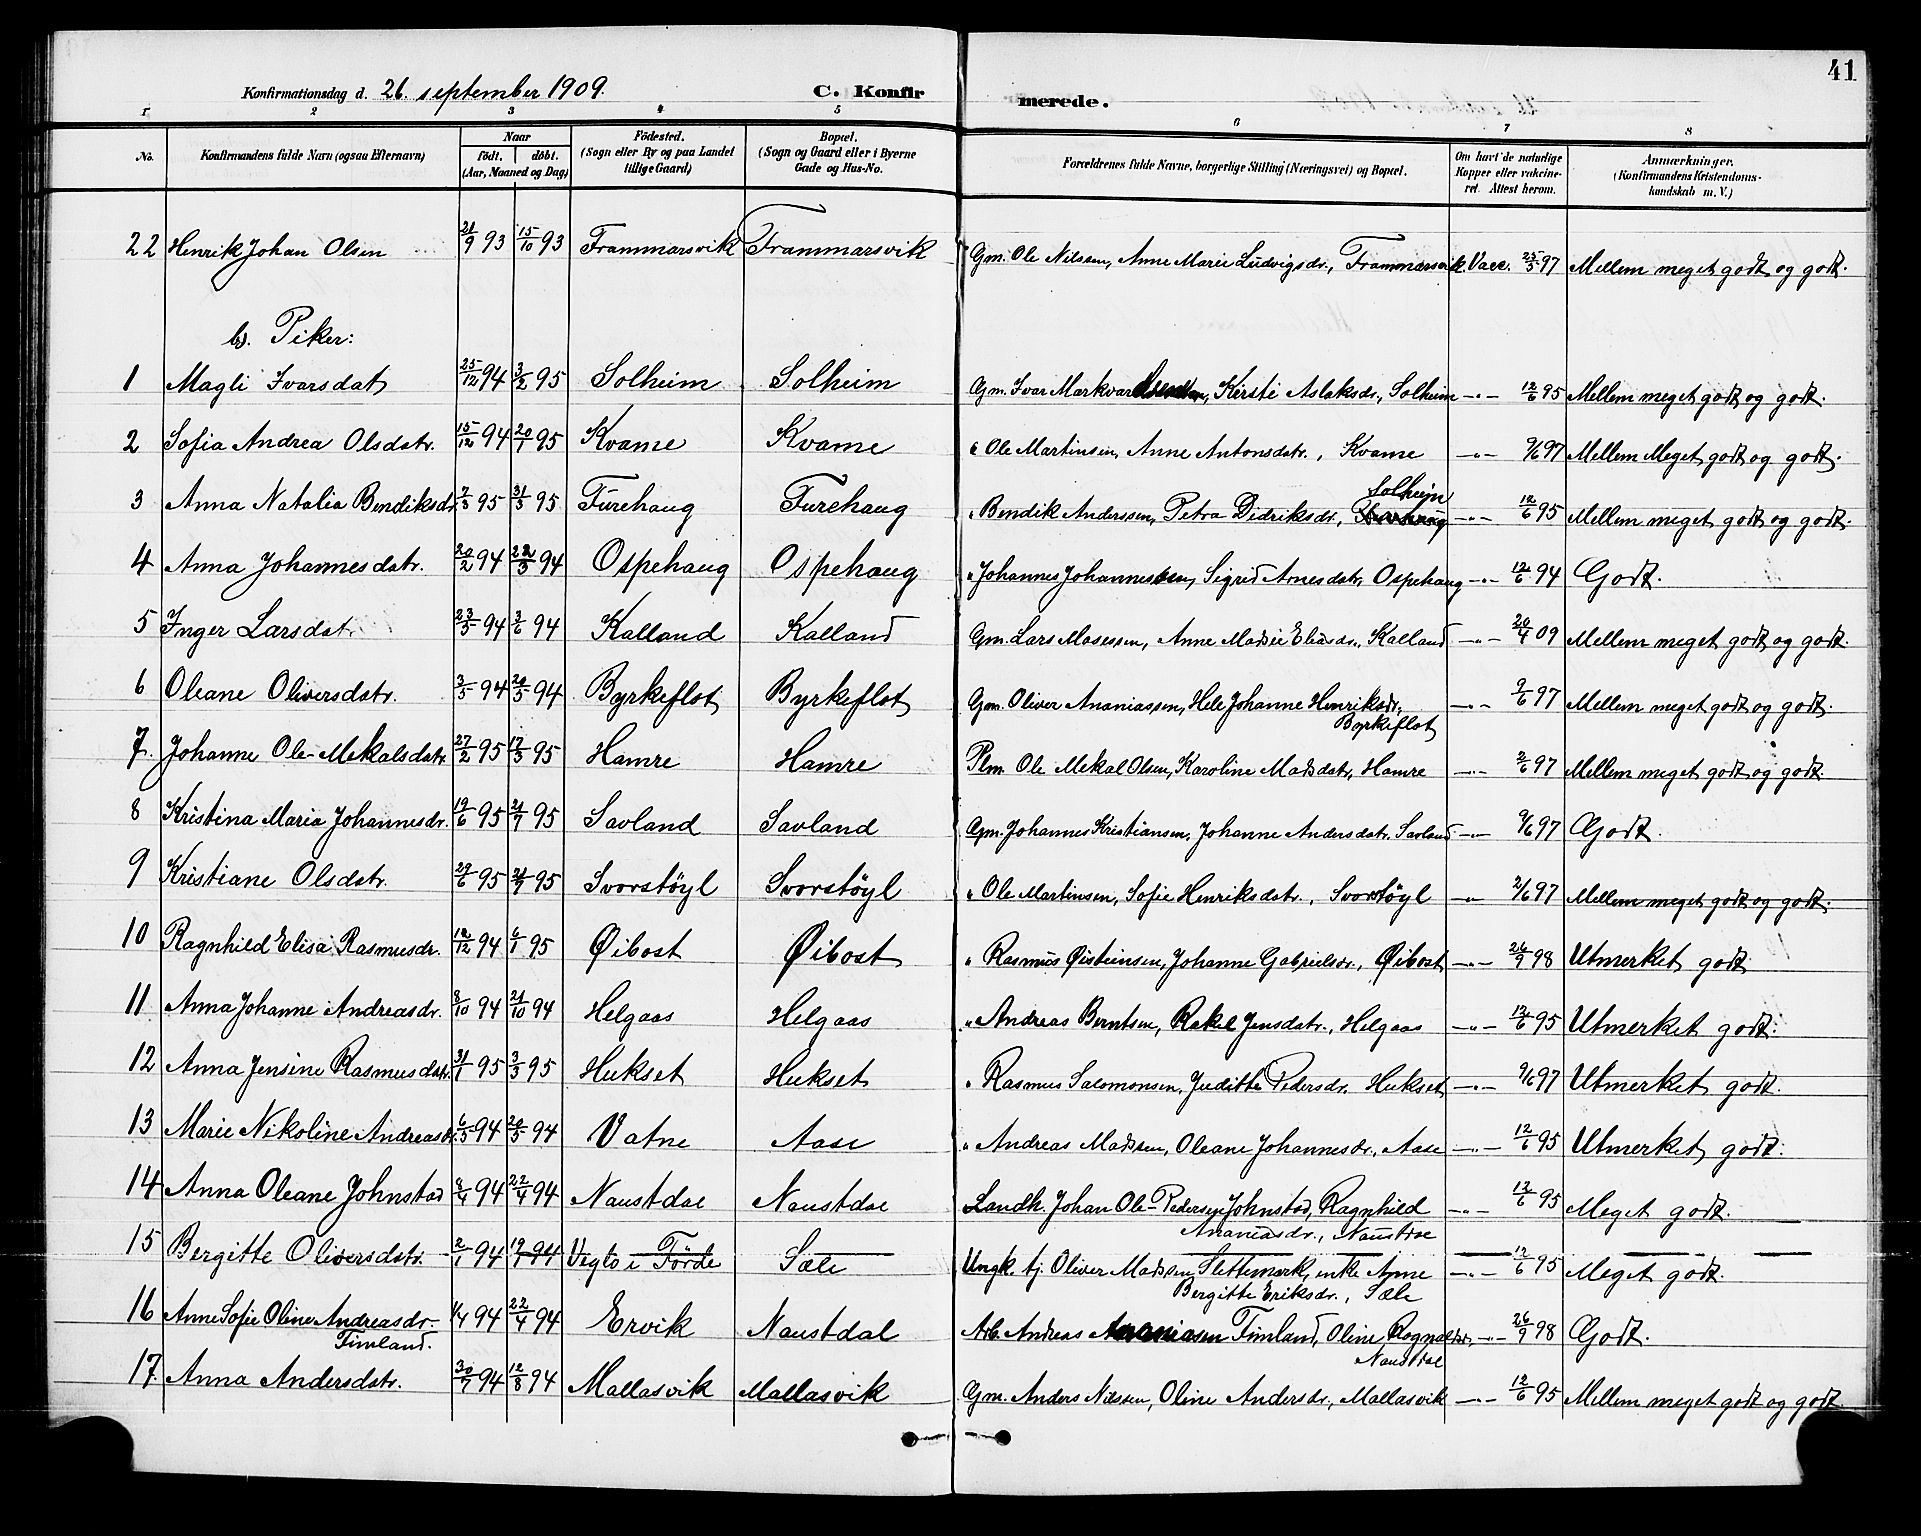 41
Konfirmationsdag d. 26. september 1909. C. Konfirmerede.
1 2 3 4 5 6 7 8
No. Konfirmandens fulde Navn (ogsaa Efternavn) Naar födt. döbt. (Aar, Maaned og Dag) Födested. (Sogn eller By og paa Landet tillige Gaard) Bopæl. (Sogn og Gaard eller i Byerne Gade og Hus-No. Forældrenes fulde Navne, borgerlige Stilling (Næringsvei) og Bopæl. Om havt de naturlige Kopper eller vakcineret. Attest herom. Anmærkninger. (Konfirmandens Kristendomskundskab m. V.)
22 Henrik Johan Olsen 21/9 93 15/10 93 Frammarsvik Frammarsvik Gm. Ole Nilssen, Anne Marie Ludvigsdr., Frammarsvik Vacc. 25/5 97 Mellem meget godt og godt.
b). Piker:
1 Magli Ivarsdat 25/12 94 3/2 95 Solheim Solheim Gm. Ivar Markvardsen, Kirsti Aslaksdr., Solheim —"— 12/6 95 Mellem meget godt og godt.
2 Sofia Andrea Olsdatr. 15/12 94 20/1 95 Kvame Kvame " Ole Martinsen, Anne Antonsdatr., Kvame —"— 9/6 97 Mellem Meget godt og godt.
3 Anna Natalia Bendiksdr. 7/3 95 31/3 95 Furehaug Furehaug " Bendik Anderssen, Petra Didriksdr., Furehaug Solheim —"— 12/6 95 Mellem meget godt og godt.
4 Anna Johannesdatr. 20/2 94 22/3 94 Ospehaug Ospehaug " Johannes Johannessen, Sigrid Arnesdatr, Ospehaug —"— 12/6 94 Godt.
5 Inger Larsdatr 23/5 94 3/6 94 Kalland Kalland Gm. Lars Mosessen, Anne Madsie Eliasdr., Kalland —"— 20/4 09 Mellem meget godt og godt.
6 Oleane Oliversdatr. 3/5 94 20/5 94 Byrkeflot Byrkeflot Gm. Oliver Ananiassen, Hele Johanne Henriksdr, —"— 9/6 97 Mellem meget godt og godt.
Byrkeflot
7. Johanne Ole-Mekalsdatr. 27/2 95 17/3 95 Hamre Hamre Plm. Ole Mekal Olsen, Karoline Madsdatr, Hamre —"— 9/6 97 Mellem meget godt og godt.
8 Kristina Maria Johannesdr. 19/6 95 21/7 95 Savland Savland Gm. Johannes Kristiansen, Johanne Andersdatr. Savland —"— 9/6 97 Godt.
9 Kristiane Olsdatr. 29/6 95 21/7 95 Svorstöyl Svorstöyl " Ole Martinsen, Sofie Henriksdatr., Svorstöyl —"— 2/6 97 Mellem meget godt og godt.
10 Ragnhild Elisa Rasmusdr. 12/12 94 6/1 95 Øibost Øibost " Rasmus Øisteinsen, Johanne Gabrielsdr., Øibost —"— 26/9 98 Utmerket godt
11 Anna Johanne Andreasdr. 8/10 94 21/10 94 Helgaas Helgaas " Andreas Berntsen, Rakel Jensdatr., Helgaas —"— 12/6 95 Utmerket godt.
12 Anna Jensine Rasmusdatr. 31/1 95 3/3 95 Hukset Hukset " Rasmus Salomonsen, Juditte Pedersdr. Hukset —"— 9/6 97 Utmerket godt.
13 Marie Nikoline Andreasdr. 6/5 94 20/5 94 Vatne Aase " Andreas Madssen, Oleane Johannesdr., Aase —"— 12/6 95 Utmerket godt.
14 Anna Oleane Johnstad 8/4 94 22/4 94 Naustdal Naustdal Landh. Johan Ole-Pedersen Johnstad, Ragnhild —"— 12/6 95 Meget godt.
Ananiasdr., Naustdal
15 Bergitte Oliversdatr. 2/1 94 19/1 94 Veglo i Förde Sæle Ungk. tj. Oliver Madssen Slettemark, enke Anne —"— 12/6 95 Meget godt.
Bergitte Eriksdr., Sæle
16 Anne Sofie Oline Andreasdr- 1/4 94 22/4 94 Ervik Naustdal Arb. Andreas Ananiasen Timland, Oline Ragnaldsdr, —"— 26/9 98 Godt.
Timland. Naustdal
17. Anna Andersdatr. 30/7 94 12/8 94 Mallasvik Mallasvik Gm. Anders Nilssen, Oline Andersdr., Mallasvik —"— 12/6 95 Mellem meget godt og godt.